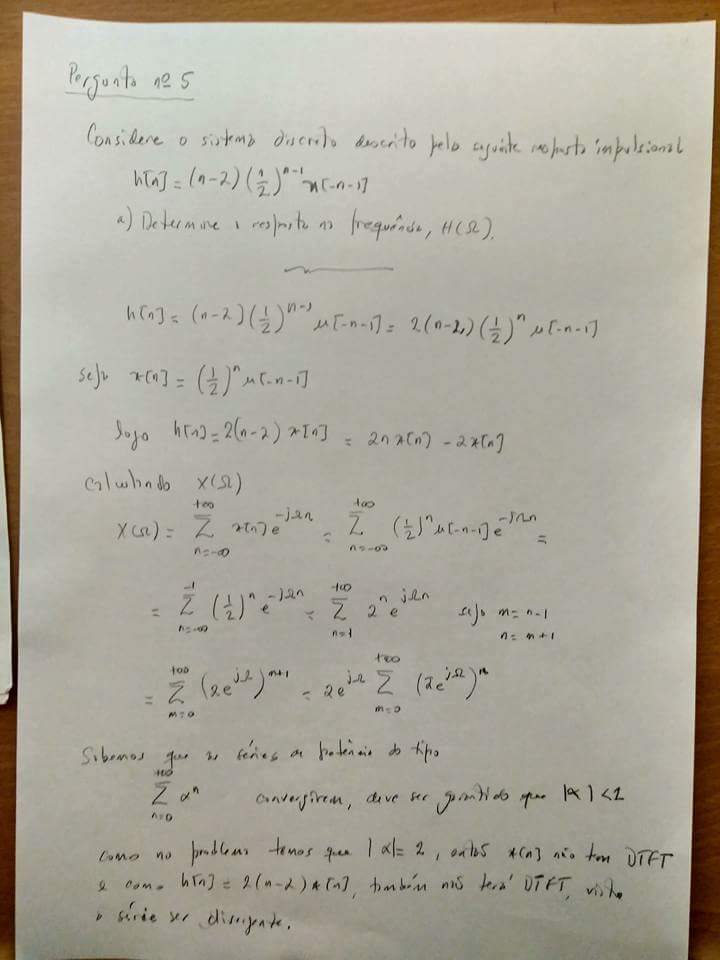 Pergunta nº 5
Considere o sistema discreto descrito pela seguinte resposta impulsional
h[n] = (n-2) (n/2)^{n-1} u[-n-1]
a) Determine a resposta na frequência, H(Ω).
h[n] = (n-2) (1/2)^{n-1} u[-n-1] = 2(n-2) (1/2)^n u[-n-1]
seja x[n] = (1/2)^n u[-n-1]
logo h[n] = 2(n-2) x[n] = 2n x[n] - 2x[n]
Calculando X(Ω)
X(Ω) = Σ_{n=-∞}^{+∞} x[n] e^{-jΩn} = Σ_{n=-∞}^{+∞} (1/2)^n u[-n-1] e^{-jΩn} =
= Σ_{n=-∞}^{-1} (1/2)^n e^{-jΩn} = Σ_{n=1}^{+∞} 2^n e^{jΩn} seja m = n-1
n = m+1
= Σ_{m=0}^{+∞} (2e^{jΩ})^{m+1} = 2e^{jΩ} Σ_{m=0}^{+∞} (2e^{jΩ})^m
Sabemos que as séries de potência do tipo
Σ_{n=0}^{+∞} α^n convergirem, deve ser garantido que |α| < 1
Como no problema temos que |α| = 2, então x[n] não tem DTFT
e como h[n] = 2(n-2) x[n], também não terá DTFT, visto
a série ser divergente.